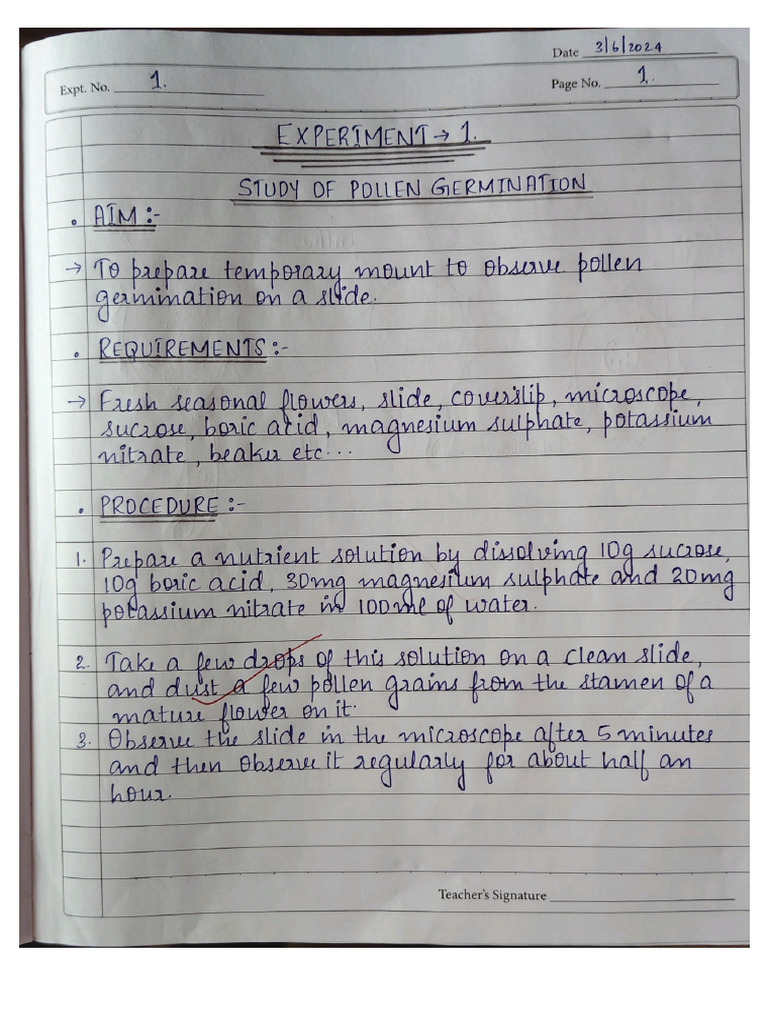 Date 3/6/2024
Expt. No. 1.
Page No. 1.
EXPERIMENT → 1.
STUDY OF POLLEN GERMINATION
• AIM :-
→ To prepare temporary mount to observe pollen
germination on a slide.
• REQUIREMENTS :-
→ Fresh seasonal flowers, slide, coverslip, microscope,
sucrose, boric acid, magnesium sulphate, potassium
nitrate, beaker etc...
• PROCEDURE :-
1. Prepare a nutrient solution by dissolving 10g sucrose,
10g boric acid, 30mg magnesium sulphate and 20mg
potassium nitrate in 100ml of water.
2. Take a few drops of this solution on a clean slide,
and dust a few pollen grains from the stamen of a
mature flower on it.
3. Observe the slide in the microscope after 5 minutes
and then observe it regularly for about half an
hour.
Teacher's Signature